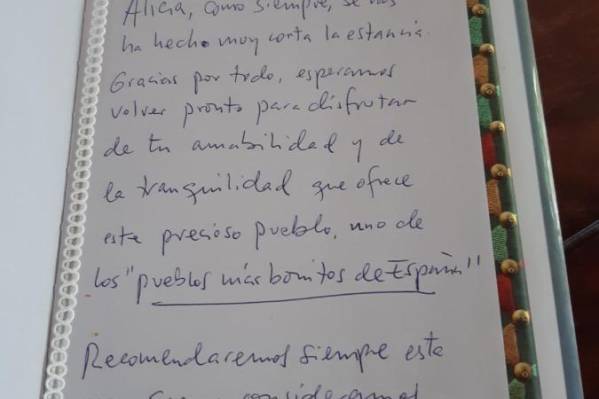 Alicia, como siempre, se nos
ha hecho muy corta la estancia.
Gracias por todo, esperamos
volver pronto para disfrutar
de tu amabilidad y de
la tranquilidad que ofrece
este precioso pueblo, uno de
los "pueblos más bonitos de España"
Recomendaremos siempre esta
consideramos